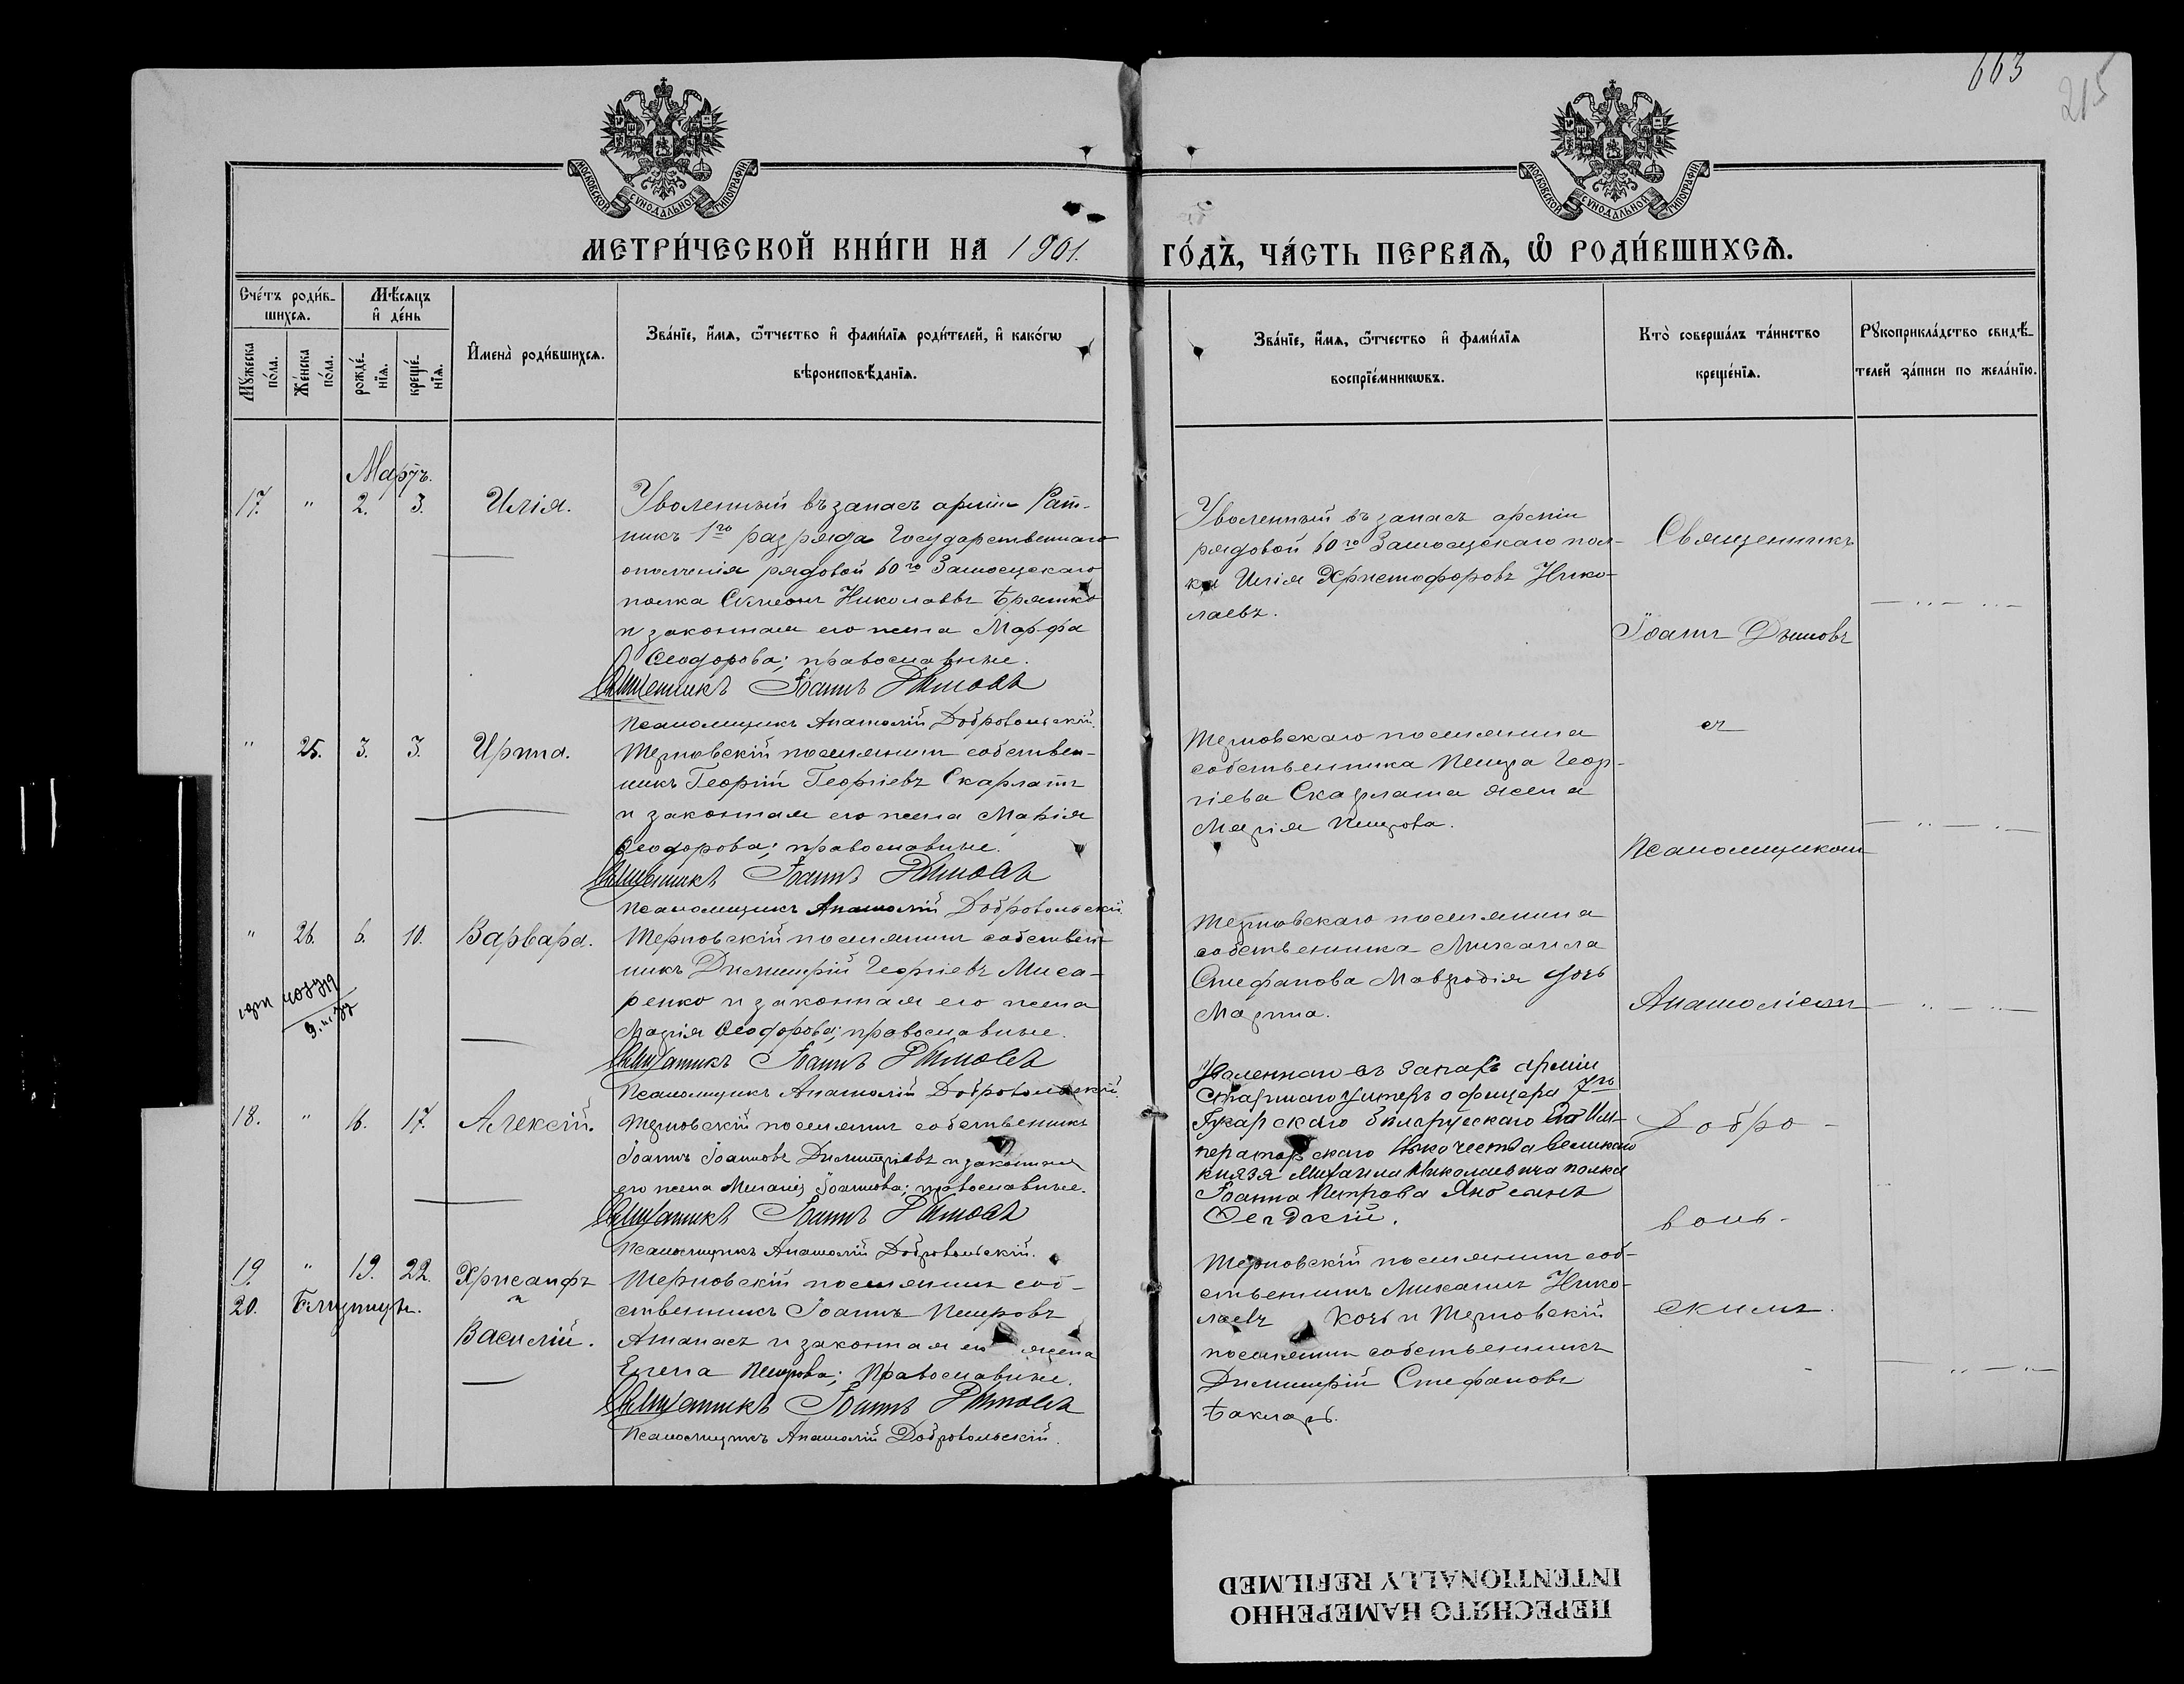 663
215
МОСКОВСКОЙ СУНОДАЛЬНОЙ ТИПОГРАФІИ
МОСКОВСКОЙ СУНОДАЛЬНОЙ ТИПОГРАФІИ
МЕТРИ́ЧЕСКОЙ КНИ́ГИ НА 1901.
ГО́ДЪ, ЧА́СТЬ ПЕРВАѦ, Ѡ҆ РОДИ́ВШИХСѦ.
Сче́тъ роди́в-
шихсѧ.
Мѣ́сѧцъ
и҆ де́нь
Мꙋ́жеска
по́ла.
Же́нска
по́ла.
рожде́-
нїѧ.
креще́-
нїѧ.
И҆мена̀ роди́вшихсѧ.
Зва́нїе, и҆́мѧ, ѻ҆́тчество и҆ фами́лїѧ роди́телей, и҆ како́гѡ
вѣроисповѣ́данїѧ.
Зва́нїе, и҆́мѧ, ѻ҆́тчество и҆ фами́лїѧ
воспрїе́мникѡвъ.
Кто̀ соверша́лъ та́инство
креще́нїѧ.
Рꙋкоприкла́дство свидѣ́-
телей за́писи по жела́нїю.
Мартъ.
17. " 2. 3. Илія.
Уволенный въ запасъ арміи Рат-
никъ 1го разряда Государственнаго
ополченія рядовой 60го Замосцскаго
полка Симеонъ Николаевъ Брятко
и законная его жена Марфа
Ѳеодорова; православные.
Священникъ Іоаннъ Дымовъ
Псаломщикъ Анатолій Добровольскій.
Уволенный въ запасъ арміи
рядовой 60го Замосцскаго пол-
ка Илія Христофоровъ Нико-
лаевъ.
Священникъ
Іоаннъ Дымовъ
" 25. 3. 3. Ирина.
Терновскій поселянинъ собствен-
никъ Георгій Георгіевъ Скарлатъ
и законная его жена Марія
Ѳеодорова; православные.
Священникъ Іоаннъ Дымовъ
Псаломщикъ Анатолій Добровольскій.
Терновскаго поселянина
собственника Петра Геор-
гіева Скарлата жена
Марія Петрова.
съ
Псаломщикомъ
" 26. 6. 10. Варвара.
Терновскій поселянинъ собствен-
никъ Димитрій Георгіевъ Миса-
ренко и законная его жена
Марія Ѳеодорова; православные.
Священникъ Іоаннъ Дымовъ
Псаломщикъ Анатолій Добровольскій.
Терновскаго поселянина
собственника Михаила
Стефанова Мавродія дочь
Марина.
Анатоліемъ
18. " 16. 17. Алексій.
Терновскій поселянинъ собственникъ
Іоаннъ Іоанновъ Димитріевъ и законная
его жена Меланія Іоаннова; православные.
Священникъ Іоаннъ Дымовъ
Псаломщикъ Анатолій Добровольскій.
Уволеннаго въ запасъ арміи
Старшаго унтеръ офицера 7го
Гусарскаго Бѣлорусскаго Его Им-
ператорскаго Высочества Великаго
князя Михаила Николаевича полка
Іоанна Петрова сынъ
Добро-
воль-
19. " 19. 22. Хрисанфъ
20. Близнецы. и
Василій.
Терновскій поселянинъ соб-
ственникъ Іоаннъ Петровъ
Атанасъ и законная его жена
Елена Петрова; Православные.
Священникъ Іоаннъ Дымовъ
Псаломщикъ Анатолій Добровольскій.
Терновскій поселянинъ соб-
ственникъ Михаилъ Нико-
лаевъ Кочь и Терновскій
поселянинъ собственникъ
Димитрій Стефановъ
Бакларь.
скимъ.
ПЕРЕСНЯТО НАМЕРЕННО
INTENTIONALLY REFILMED